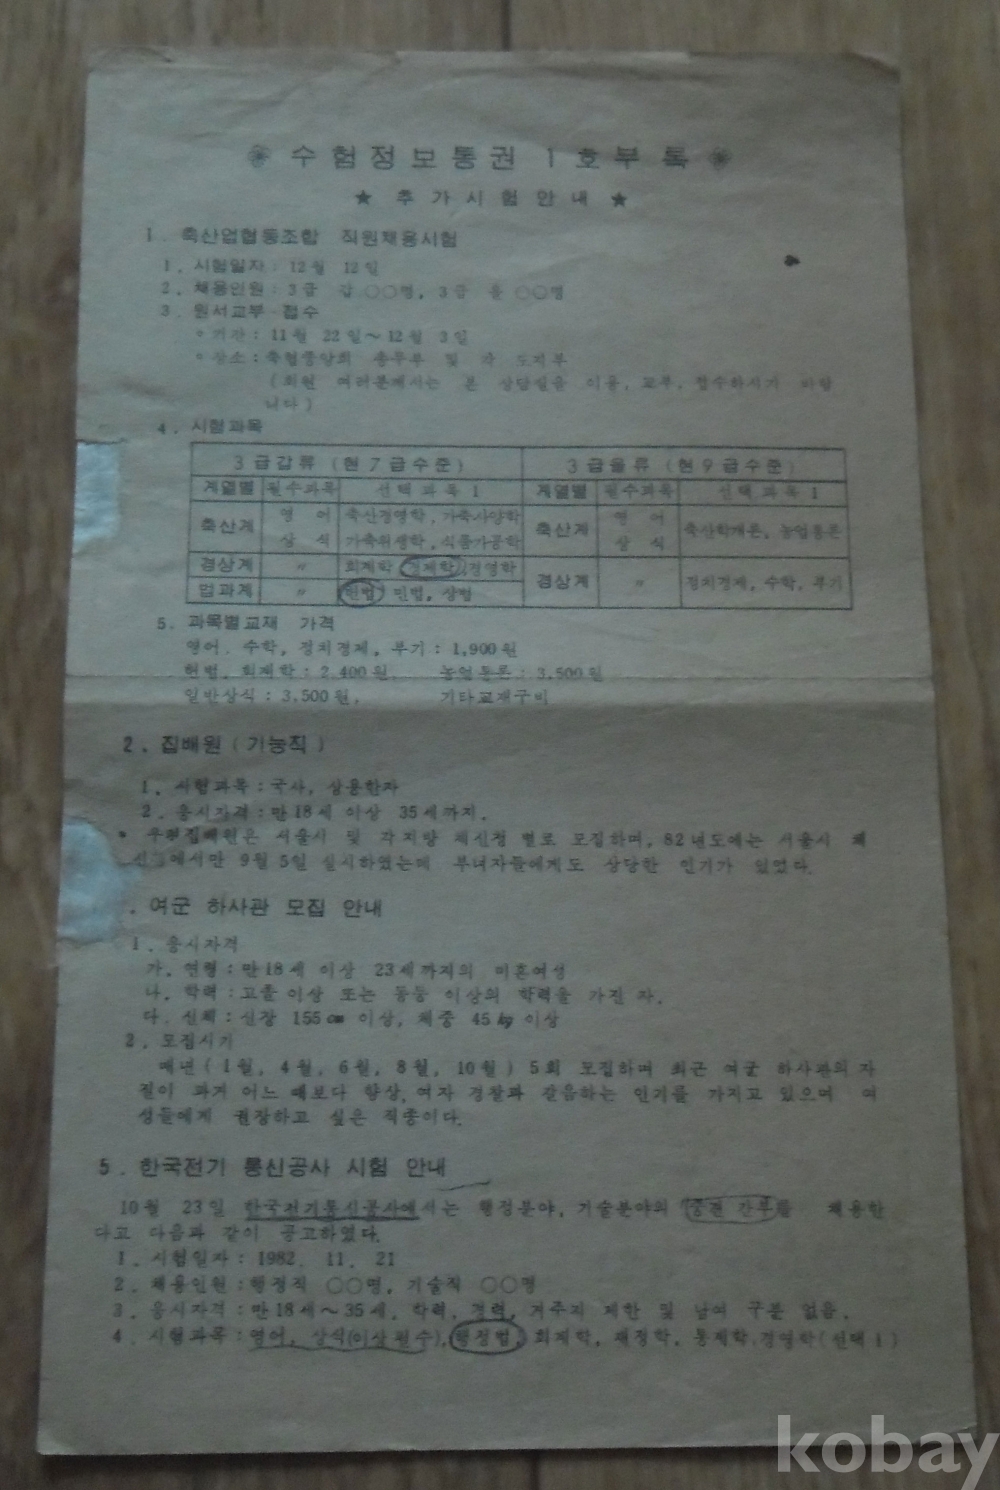 수험정보통권 1호부록
★ 추가시험안내 ★
1. 축산업협동조합 직원채용시험
1. 시험일자 : 12월 12일
2. 채용인원 : 3급 갑 ○○명, 3급 을 ○○명
3. 원서교부·접수
◦기간 : 11월 22일~12월 3일
◦장소 : 축협중앙회 총무부 및 각 도지부
(회원 여러분께서는 본 상담실을 이용, 교부, 접수하시기 바랍
니다)
4. 시험과목
3급갑류 (현7급수준) 3급을류 (현9급수준)
계열별 필수과목 선택과목1 계열별 필수과목 선택과목1
축산계 영어 상식 축산경영학, 가축사양학 가축위생학, 식품가공학 축산계 영어 상식 축산학개론, 농업통론
경상계 〃 회계학 경제학, 경영학 경상계 〃 정치경제, 수학, 부기
법과계 〃 헌법 민법, 상법
5. 과목별교재 가격
영어. 수학, 정치경제, 부기 : 1,900원
헌법, 회계학 : 2,400원. 농업통론 : 3,500원
일반상식 : 3,500원, 기타교재구비
2. 집배원 (기능직)
1. 시험과목 : 국사, 상용한자
2. 응시자격 : 만18세 이상 35세까지.
* 우편집배원은 서울시 및 각지방 체신청 별로 모집하며, 82년도에는 서울시 체
신청에서만 9월 5일 실시하였는데 부녀자들에게도 상당한 인기가 있었다.
. 여군 하사관 모집 안내
1. 응시자격
가. 연령 : 만18세 이상 23세까지의 미혼여성
나. 학력 : 고졸 이상 또는 동등 이상의 학력을 가진 자.
다. 신체 : 신장 155cm 이상, 체중 45kg 이상
2. 모집시기
매년 (1월, 4월, 6월, 8월, 10월) 5회 모집하며 최근 여군 하사관의 자
질이 과거 어느 때보다 향상, 여자 경찰과 같음하는 인기를 가지고 있으며 여
성들에게 권장하고 싶은 직종이다.
5. 한국전기 통신공사 시험 안내
10월 23일 한국전기통신공사에서는 행정분야, 기술분야의 중견 간부를 채용한
다고 다음과 같이 공고하였다.
1. 시험일자 : 1982. 11. 21
2. 채용인원 : 행정직 ○○명, 기술직 ○○명
3. 응시자격 : 만18세~35세, 학력, 경력, 거주지 제한 및 남여 구분 없음.
4. 시험과목 : 영어, 상식(이상필수), 행정법, 회계학, 재정학, 통계학, 경영학(선택1)
kobay